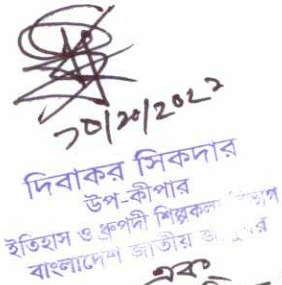 ১০/১০/২০২২
দিবাকর সিকদার
উপ-কীপার
ইতিহাস ও ধ্রুপদী শিল্পকলা
বাংলাদেশ জাতীয়
এবং